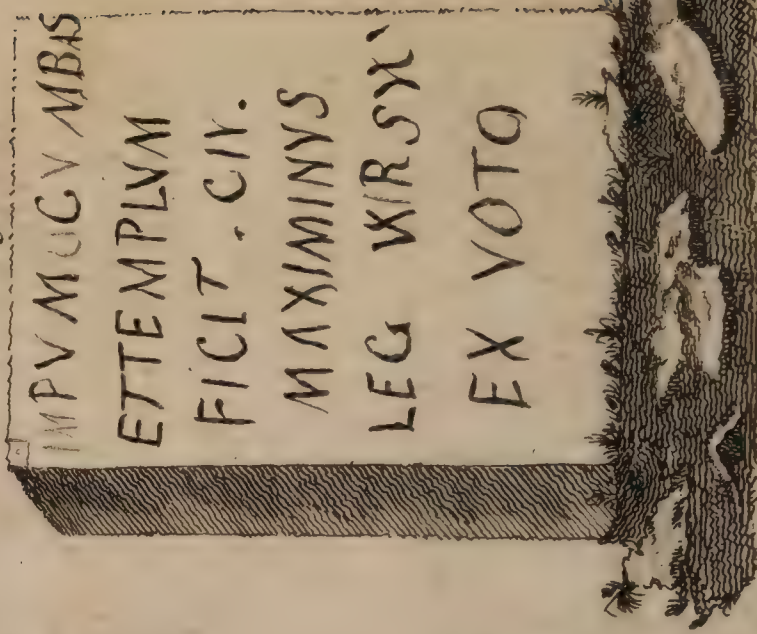 IMPV MUCV MBAS
ETTEMPLVM
FICIT . CIV.
MAXIMINVS
LEG
EX VOTO